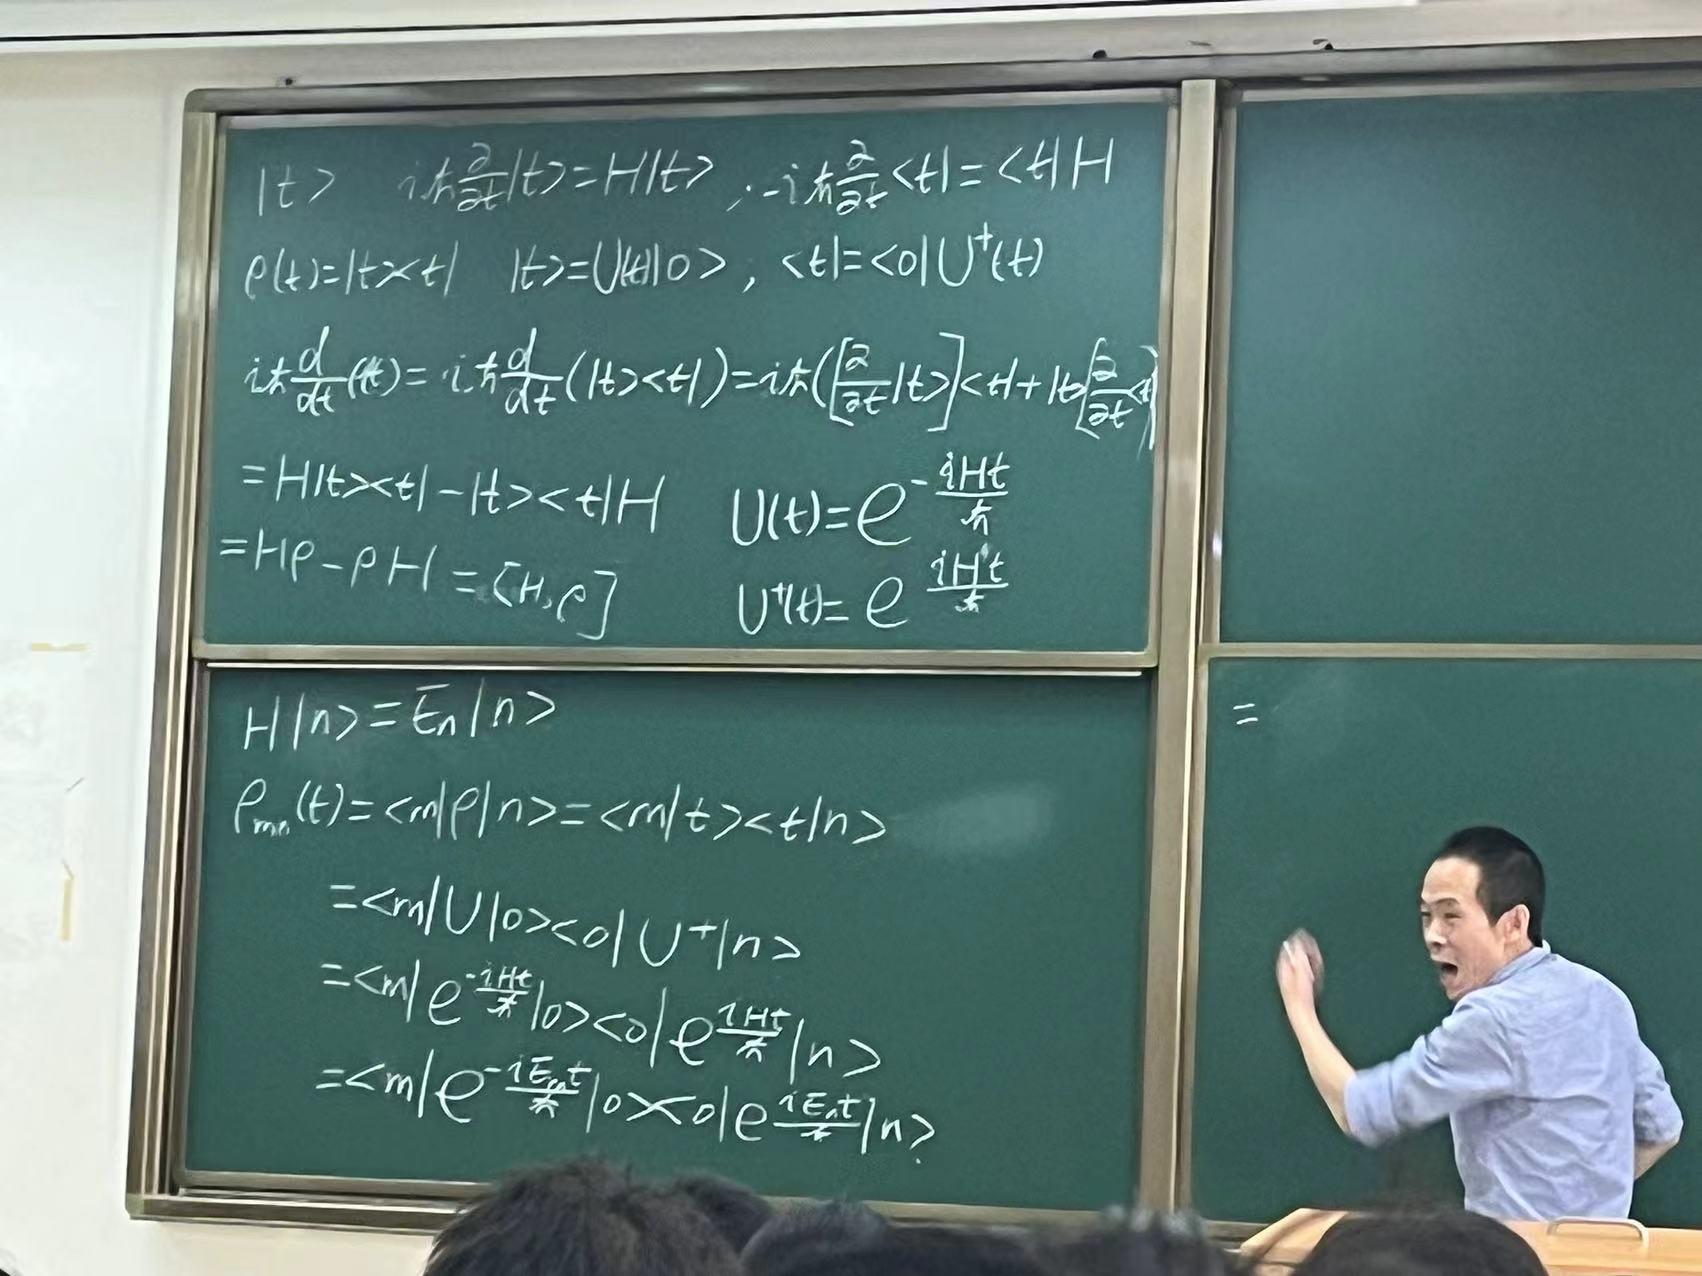 |t> iħ∂/∂t|t>=H|t>, -iħ∂/∂t<t|=<t|H
ρ(t)=|t><t| |t>=U(t)|0>, <t|=<0|U⁺(t)
iħd/dt(t)=iħd/dt(|t><t|)=iħ([∂/∂t|t>]<t|+|t>[∂/∂t<t|])
=H|t><t|-|t><t|H U(t)=e^(-iHt/ħ)
=Hρ-ρH=[H,ρ] U⁺(t)=e^(iH't/ħ)
H|n>=Eₙ|n>
ρₘₙ(t)=<m|ρ|n>=<m|t><t|n>
=<m|U|0><0|U⁺|n>
=<m|e^(-iHt/ħ)|0><0|e^(iHt/ħ)|n>
=<m|e^(-iEₘt/ħ)|0><0|e^(iEₙt/ħ)|n>
=